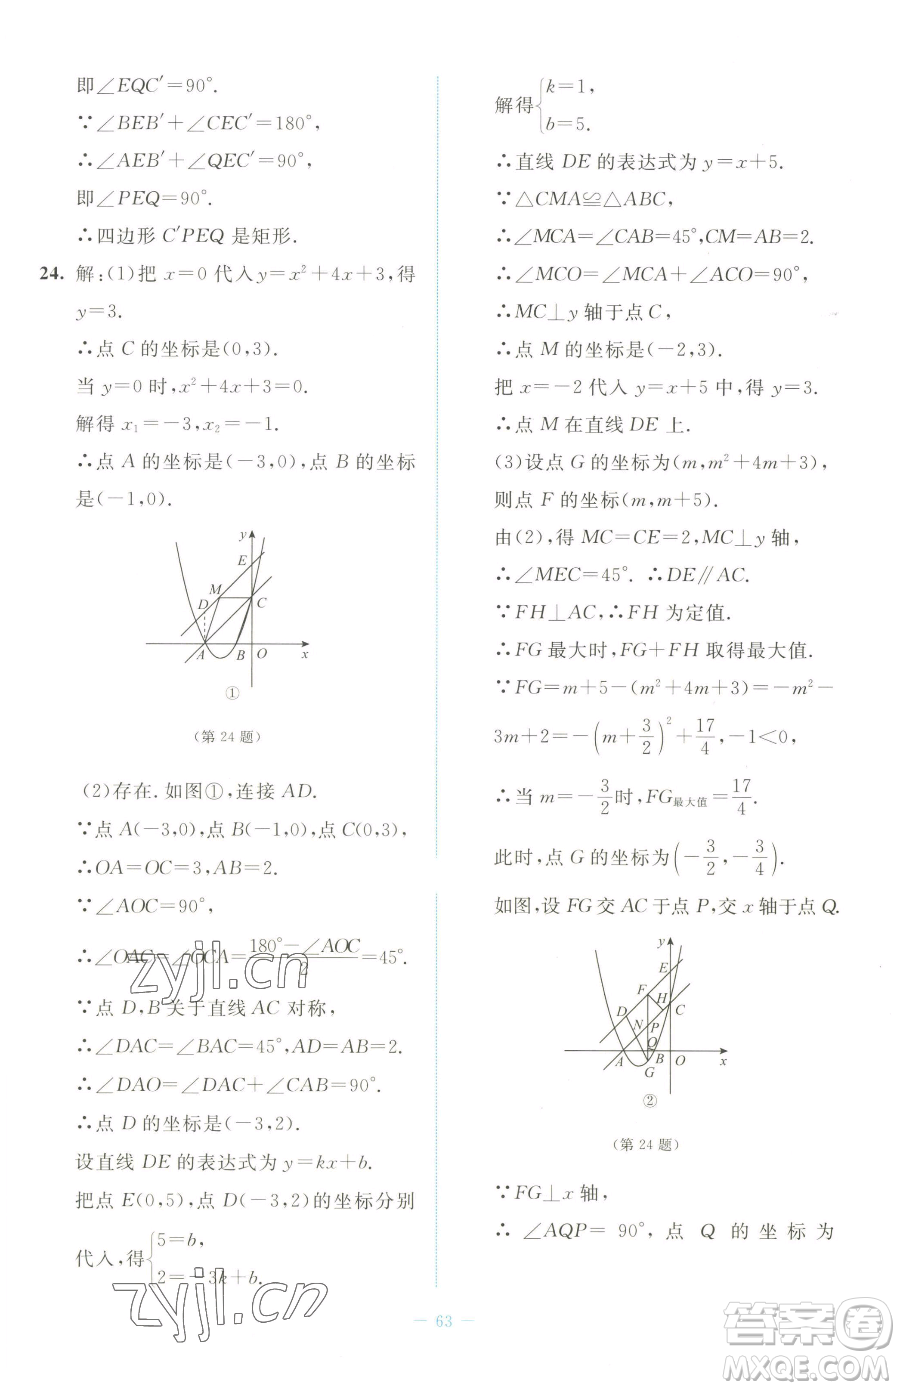 即∠EQC′=90°.
∵∠BEB′+∠CEC′=180°,
∴∠AEB′+∠QEC′=90°,
即∠PEQ=90°.
∴四边形 C′PEQ 是矩形.
24. 解:(1)把 x=0 代入 y=x²+4x+3,得
y=3.
∴点 C 的坐标是(0,3).
当 y=0 时,x²+4x+3=0.
解得 x₁=-3,x₂=-1.
∴点 A 的坐标是(-3,0),点 B 的坐标
是(-1,0).
y
E
D M C
A B O x
①
(第 24 题)
(2)存在.如图①,连接 AD.
∵点 A(-3,0),点 B(-1,0),点 C(0,3),
∴OA=OC=3,AB=2.
∵∠AOC=90°,
∴∠OAC=∠OCA=(180°-∠AOC)/2=45°.
∵点 D,B 关于直线 AC 对称,
∴∠DAC=∠BAC=45°,AD=AB=2.
∴∠DAO=∠DAC+∠CAB=90°.
∴点 D 的坐标是(-3,2).
设直线 DE 的表达式为 y=kx+b.
把点 E(0,5),点 D(-3,2)的坐标分别
代入,得{5=b,
2=-3k+b.
解得{k=1,
b=5.
∴直线 DE 的表达式为 y=x+5.
∵△CMA≌△ABC,
∴∠MCA=∠CAB=45°,CM=AB=2.
∴∠MCO=∠MCA+∠ACO=90°.
∴MC⊥y 轴于点 C,
∴点 M 的坐标是(-2,3).
把 x=-2 代入 y=x+5 中,得 y=3.
∴点 M 在直线 DE 上.
(3)设点 G 的坐标为(m,m²+4m+3),
则点 F 的坐标(m,m+5).
由(2),得 MC=CE=2,MC⊥y 轴,
∴∠MEC=45°. ∴DE∥AC.
∵FH⊥AC,∴FH 为定值.
∴FG 最大时,FG+FH 取得最大值.
∵FG=m+5-(m²+4m+3)=-m²-
3m+2=-(m+3/2)²+17/4,-1<0,
∴当 m=-3/2时,FG最大值=17/4.
此时,点 G 的坐标为(-3/2,-3/4).
如图,设 FG 交 AC 于点 P,交 x 轴于点 Q.
y
E
F H
D N C
P
Q
A B O x
G
②
(第 24 题)
∵FG⊥x 轴,
∴∠AQP=90°,点 Q 的坐标为
— 63 —
zyjl.cn
zyjl.cn
答案圈
MXQE.COM